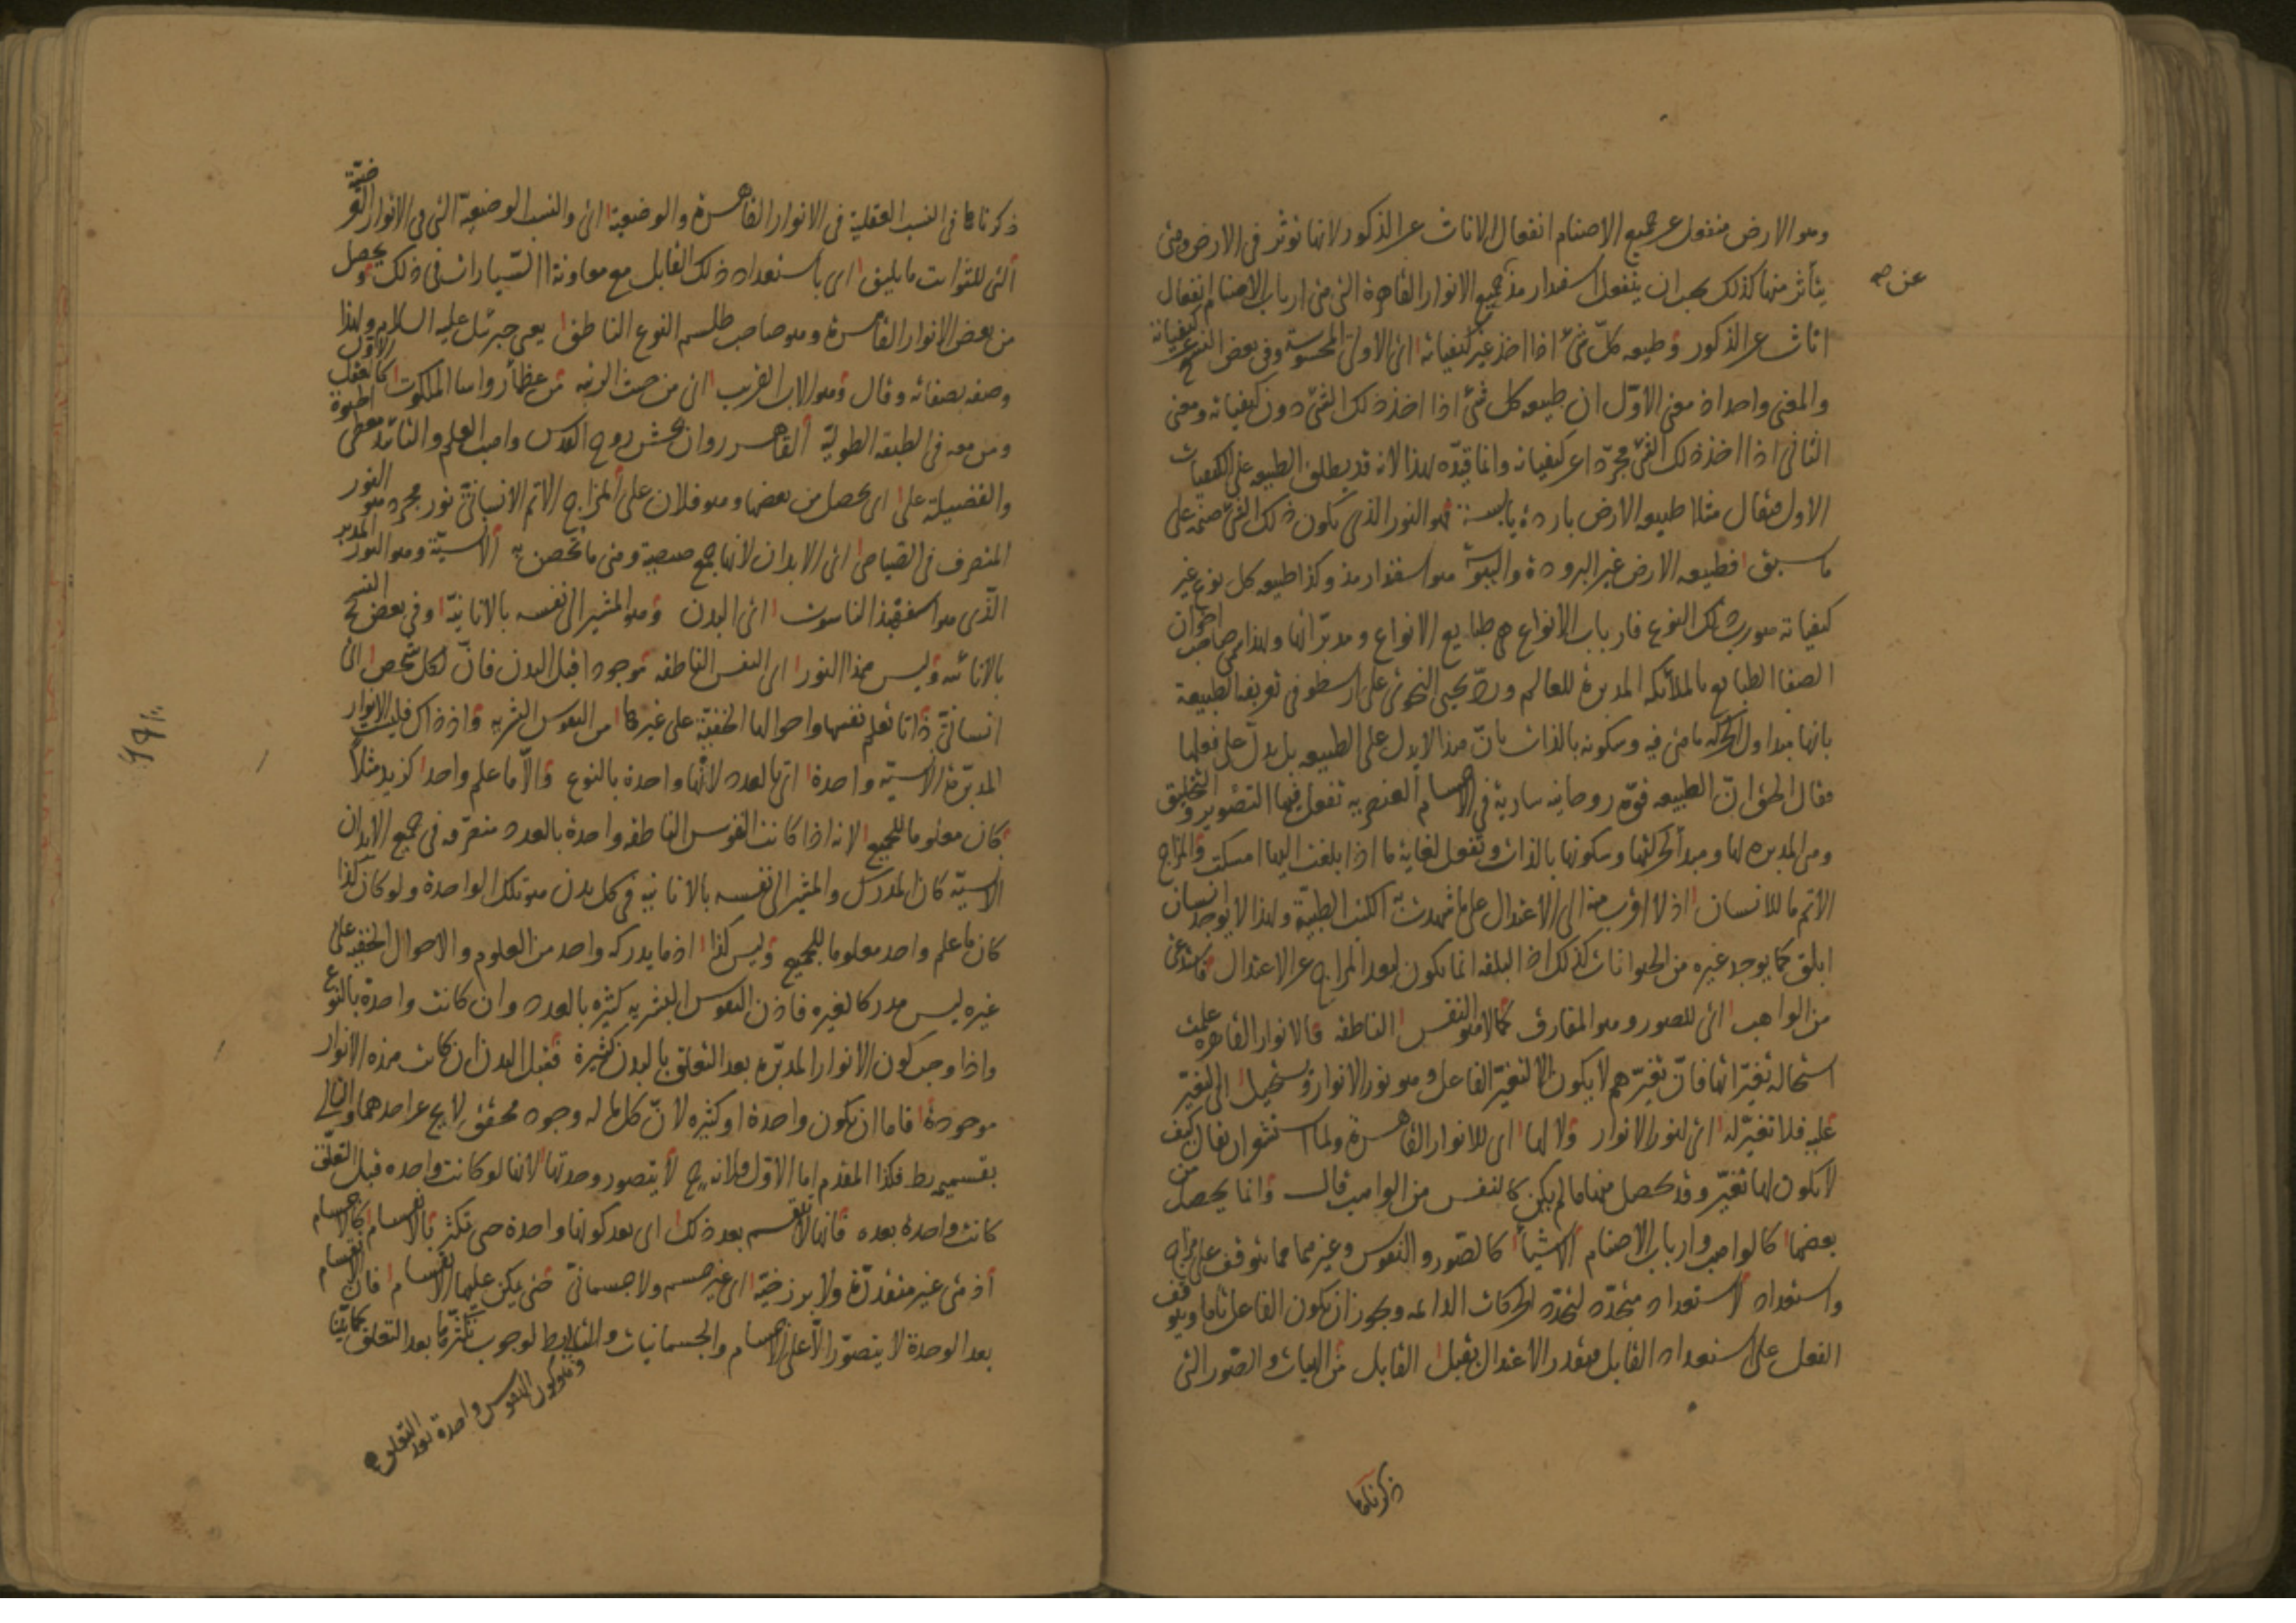 وهو الارض منفعل عن جميع الاصنام انفعال الاناث عن الذكور لانها تؤثر فى الارض وهى
عن صح
يتأثر منها كذلك يجب ان ينفعل اسفندارمذ عن جميع الانوار القاهرة التى هى ارباب الاصنام انفعال
اناث عن الذكور وطبيعه كلّ شئ اذا اخذ غير كيفياته اى الاولى المحسوسة وفى بعض النسخ عن كيفياته
والمعنى واحد اذ معنى الاوّل ان طبيعه كل شئ اذا اخذ ذلك الشئ دون كيفياته ومعنى
الثانى اذا اخذ ذلك الشئ مجرّدا عن كيفياته وانما قيّده بهذا لانه قد يطلق الطبيعه على الكيفيات
الاول فيقال مثلا طبيعه الارض باردة يابسة فهو النور الذى يكون ذلك الشئ صنمه على
ما سبق فطبيعه الارض غير البرودة واليبوسة هو اسفندارمذ وكذا طبيعه كل نوع غير
كيفياته هو رب ذلك النوع فارباب الانواع هى طبايع الانواع ومدبّراتها ولهذا سمى صاحب اخوان
الصفا الطبايع بالملائكه المدبرة للعالم وردّ يحيى النحوى على ارسطو فى تعريف الطبيعة
بانها مبدا اول لحركه ما هى فيه وسكونه بالذات بانّ هذا لا يدل على الطبيعه بل يدلّ على فعلها
فقال الحق انّ الطبيعه قوّة روحانيه سارية فى الاجسام العنصريه تفعل فيها التصوير والتخليق
وهى المدبره لها ومبدأ لحركتها وسكونها بالذات وتفعل لغاية ما اذا بلغت اليها امسكت والمزاج
الاتم ما للانسان اذ لا اقرب منه الى الاعتدال على ما شهدت به الكتب الطبية ولهذا لا يوجد انسان
ابلق كما يوجد غيره من الحيوانات كذلك اذ البلقه انما يكون لبعد المزاج عن الاعتدال فاستدعى
من الواهب اى للصور وهو المفارق كمالا هو النفس الناطقه فالانوار القاهرة علمت
استحالة تغيّراتها فانّ تغيّرهم لا يكون الا لتغيّر الفاعل وهو نور الانوار ويستحيل الى التغيّر
عليه فلا تغيّر له اى لنور الانوار ولا لها اى للانوار القاهرة ولما استشعر ان يقال كيف
لا يكون لها تغيّر وقد يحصل منها ما لم يكن كالنفس من الواهب قال وانما يحصل من
بعضها كالواهب وارباب الاصنام الاشيأ كالصّور والنفوس وغيرهما مما يتوقف على مزاج
واستعداد لاستعداد متجدّد لتجدّد الحركات الدائمه ويجوز ان يكون الفاعل تاما ويتوقف
الفعل على استعداد القابل فبقدر الاعتدال يقبل القابل من الهيات والصّور التى
ذكرناها
ذكرناها فى النسب العقلية فى الانوار القاهرة والوضعية اى والنسب الوضعية التى فى الانوار العرضيّة
التى للثوابت ما يليق اى باستعداد ذلك القابل مع معاونة السّيارات فى ذلك ويحصل
من بعض الانوار القاهرة وهو صاحب طلسم النوع الناطق يعنى جبرئل عليه السلام ولهذا
وصفه بصفاته وقال وهو الاب القريب اى من حيث الرتبه من عظمأ رؤسا الملكوت كالعقل الاول
ومن معه فى الطبقه الطولية القاهر روان بخش روح القدس واهب العلم والتائد معطى الحيوة
والفضيلة على اى يحصل من بعضها وهو فلان على المزاج الاتم الانسانىّ نور مجرد هو النور
المتصرف فى الصياصى اى الابدان لانها جمع صيصية وهى ما تحصن به الانسيّة وهو النور المدبر
الّذى هو اسفهبذ الناسوت اى البدن وهو المشير الى نفسه بالانانيّة وفى بعض النسخ
بالانائيه وليس هذا النور اى النفس الناطقه موجودا قبل البدن فانّ لكل شخص اى
انسانىّ ذاتا تعلم نفسها واحوالها الخفيّة على غيرها من النفوس البشريه واذ ذاك فليست الانوار
المدبّرة الانسيّة واحدة اى بالعدد لانّها واحدة بالنوع والّا ما علم واحد كزيد مثلاً
كان معلوما للجميع لانه اذا كانت النفوس الناطقه واحدة بالعدد متصرّفه فى جميع الابدان
الانسيّه كان المدرك والمشير الى نفسه بالانانية فى كل بدن هو تلك الواحدة ولو كان كذا
كان ما علم واحد معلوما للجميع وليس كذا اذ ما يدركه واحد من العلوم والاحوال الخفيه على
غيره ليس مدركا لغيره فاذن النفوس البشريه كثيره بالعدد وان كانت واحدة بالنوع
واذا وجب كون الانوار المدبّره بعد التعلق بالبدن كثيرة فقبل البدن ان كانت هذه الانوار
موجودة فاما ان يكون واحدة او كثيره لانّ كل ما له وجود محقق لا يخ عن احدهما والتالى
بقسميه بط فكذا المقدم اما الاوّل فلانه ح لا يتصور وحدتها لانها لو كانت واحده قبل التعلّق
كانت واحدة بعده فانها لا تنقسم بعد ذلك اى بعد كونها واحدة حتى تكثر بالانقسام كالاجسام
اذ هى غير متقدّرة ولا برزخيّة اى غير جسم ولا جسمانىّ حتى يمكن عليها الانقسام فان الانقسام
بعد الوحدة لا يتصوّر الّا على الاجسام والجسمانيات والتالى بط لوجوب تكثّرها بعد التعلق كما بيّنا
وهو كون النفوس واحدة بعد التعلق صح